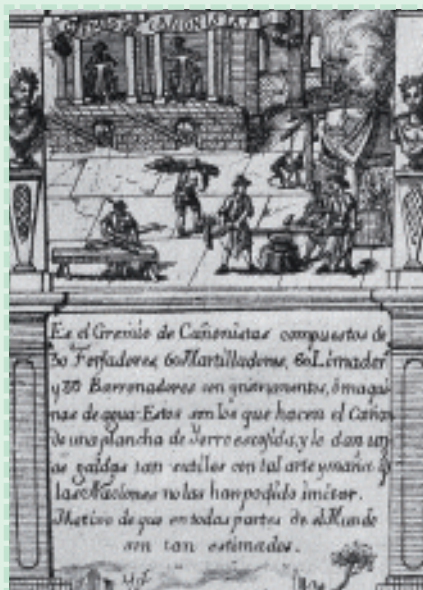 GREMIO DE CAÑONISTAS
Es el Gremio de Cañonistas compuestos de
30 Forjadores, 60 Martilladores, 60 Limador
y 20 Barrenadores con instrumentos, ò maqui
nas de agua. Estos son los que hacen el Cañon
de una plancha de Yerro escojida, y le dan un
as galdas tan sutiles con tal arte y maña
las Naciones no las han podido imitar.
Motivo de que en todas partes de el Mundo
son tan estimados.